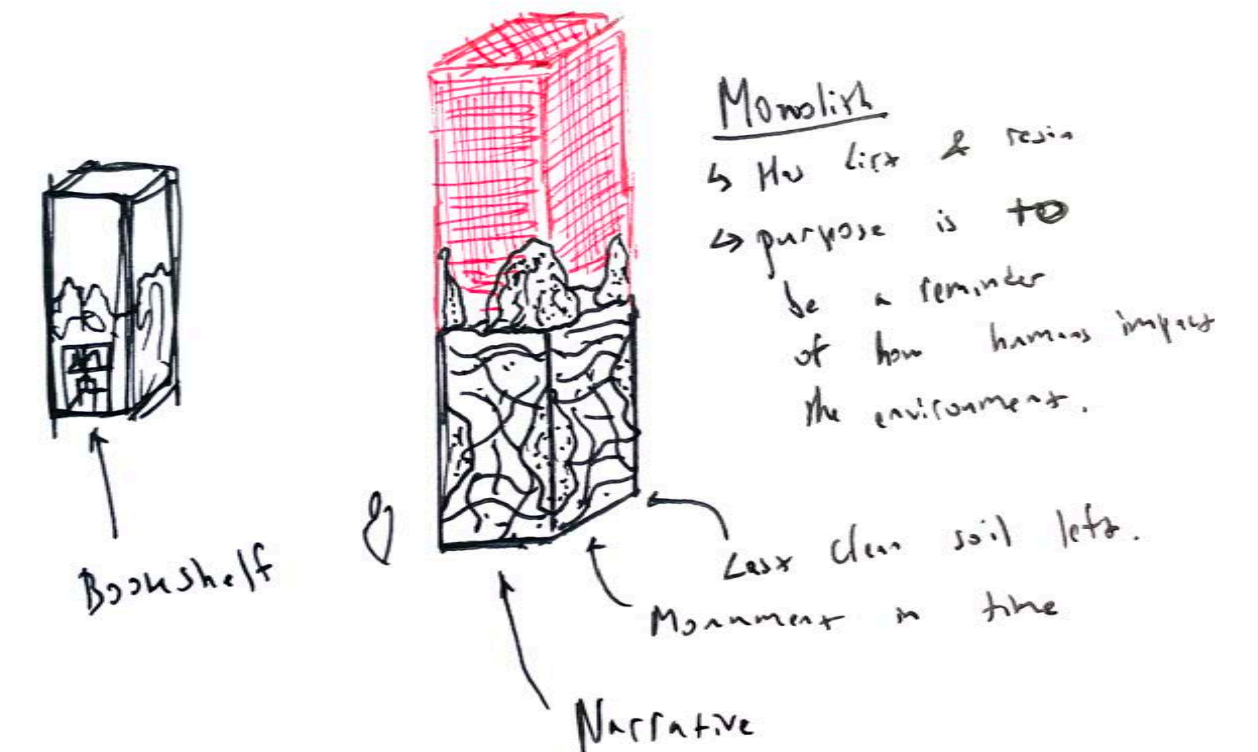 Monolith
↳ Has dirt & resin
↳ purpose is to
be a reminder
of how humans impact
the environment.
Bookshelf
Last clean soil left.
Monument in time
Narrative